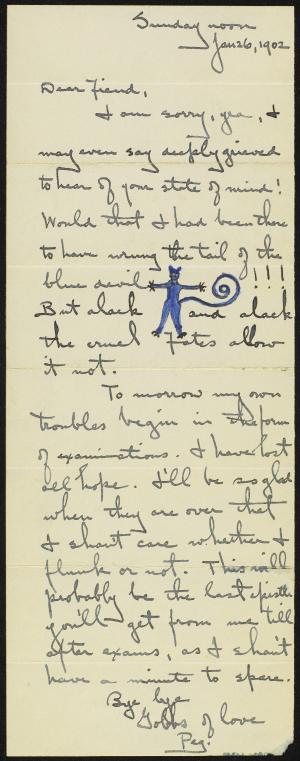 Sunday noon
Jan 26, 1902
Dear fiend,
I am sorry, yea, I
may even say deeply grieved
to hear of your state of mind!
Would that I had been there
to have wrung the tail of the
blue devil !!!
But alack and alack
the cruel Fates allow
it not.
To morrow my own
troubles begin in the form
of examinations. I have lost
all hope. I'll be so glad
when they are over that
I shan't care whether I
flunk or not. This will
probably be the last epistle
you'll get from me till
after exams, as I shan't
have a minute to spare.
Bye bye
Gobbs of love
Peg.